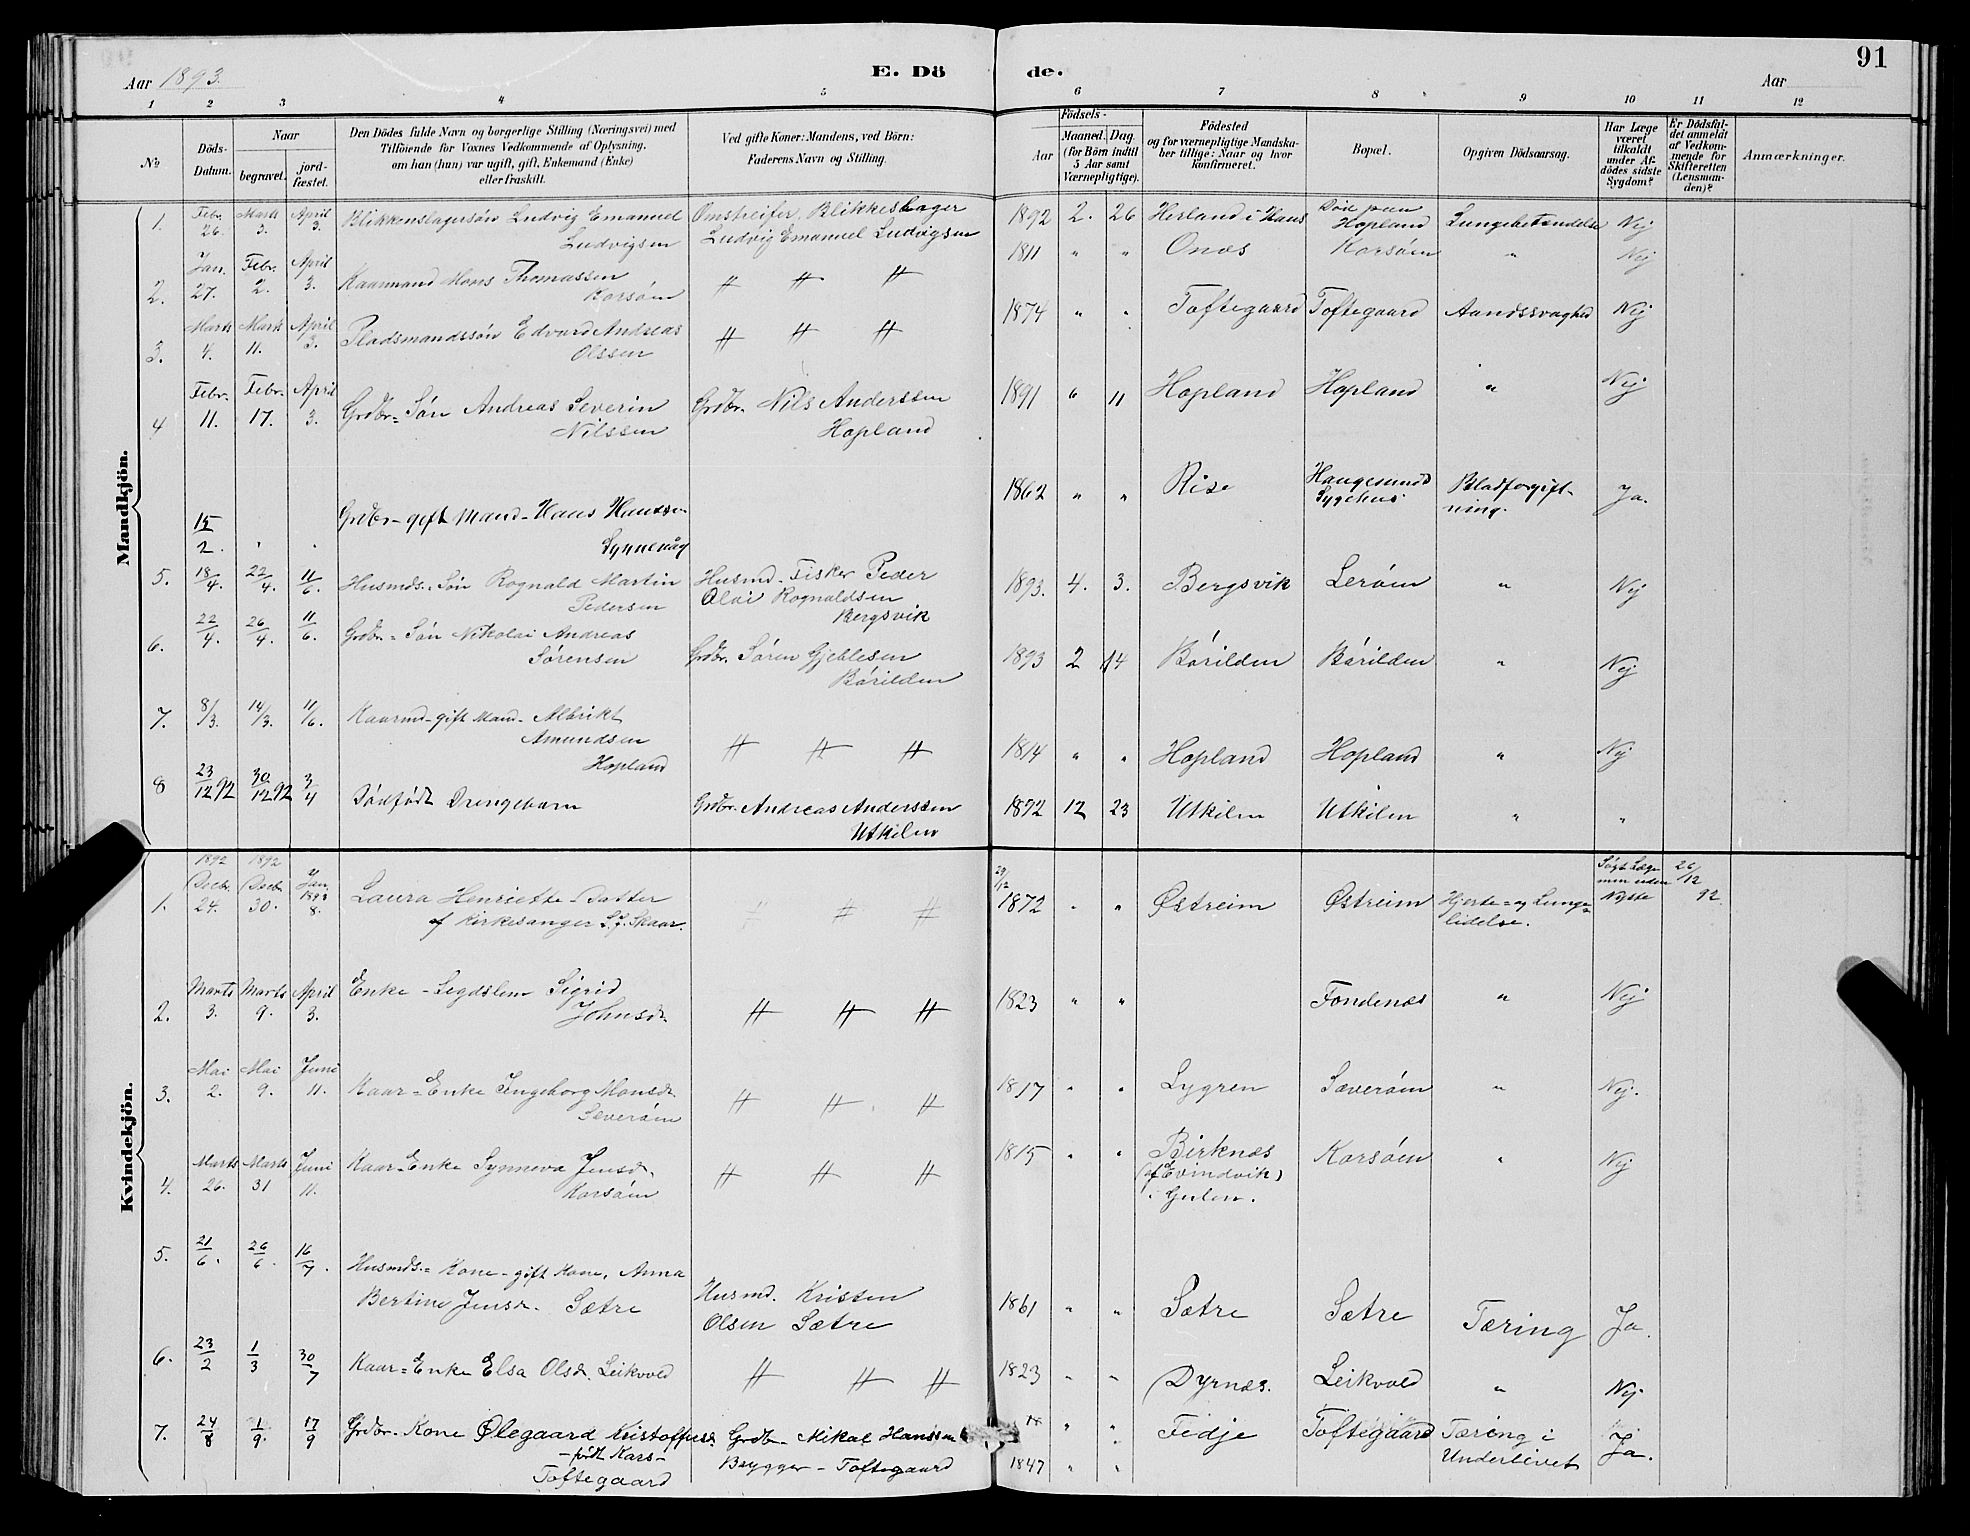 91
Aar 1893.
E. Dö
de.
Aar
1 2 3 4 5 6 7 8 9 10 11 12
No
Döds-Datum.
Naar
begravet.
jord-fæstet.
Den Dödes fulde Navn og borgerlige Stilling (Næringsvei) med
Tilföiende for Voxnes Vedkommende af Oplysning,
om han (hun) var ugift, gift, Enkemand (Enke)
eller fraskilt.
Ved gifte Koner: Mandens, ved Börn:
Faderens Navn og Stilling.
Födsels-
Aar
Maaned.
Dag.
(for Börn indtil
5 Aar samt
Værnepligtige).
Födested
og for værnepligtige Mandska-
ber tillige: Naar og hvor
konfirmeret.
Bopæl.
Opgiven Dödsaarsag.
Har Læge
været
tilkaldt
under Af-
dödes sidste
Sygdom?
Er Dödsfal-
det anmeldt
af Vedkom-
mende for
Skifteretten
(Lensman-
den)?
Anmærkninger.
Mandkjön.
1. Febr. 26. Marts 3. April 3. Blikkenslagersøn Ludvig Emanuel Ludvigsen Omstreifer, Blikkeslager Ludvig Emanuel Ludvigsen 1892 2. 26 Herland i Haus Død paa Hopland Lungebetændelse Nej
2. Jan. 27. Febr. 2. April 3. Kaarmand Mons Thomassen Korsøen " " " 1811 " " Onæs Korsøen " Nej
3. Marts 4. Marts 11. April 3. Pladsmandssøn Edvard Andreas Olssen " " " 1874 " " Toftegaard Toftegaard Aandssvaghed Nej
4 Febr. 11. Febr. 17. April 3. Grdbr.= Søn Andreas Severin Nilssen Grdbr. Nils Anderssen Hopland 1891 6 11 Hopland Hopland " Nej
15/2. Grdbr- gift Mand- Hans Hanssen Synnevåg 1862 " " Rise Haugesunds Sygehus. Blodforgiftning. Ja.
5. 18/4. 22/4. 11/6. Husmds.= Søn Rognald Martin Pedersen Husmd- Fisker Peder Olai Rognaldsen Bergsvik 1893. 4. 3. Bergsvik Lerøen " Nej
6. 22/4. 26/4. 11/6. Grdbr.= Søn Nikolai Andreas Sørensen Grdbr. Søren Gjeblesen Bårilden 1893 2 14 Bårilden Bårilden " Nej
7. 8/3. 14/3. 11/6. Kaarmd- gift Mand- Albrikt Amundsen Hopland " " " 1814 " " Hopland Hopland " Nej
8 23/12 92 30/12 92 3/4 Dødfødt Drengebarn Grdbr. Andreas Anderssen Utkilen 1892 12 23 Utkilen Utkilen " "
Kvindekjön.
1. 1892 Decbr. 24. 1892 Decbr. 30. Jan. 1893 8. Laura Henriette- Datter af Kirkesanger S.J. Skaar. " " " 29/12 1872 " " Østreim Østreim Hjerte= og Lungelidelse. Søgt Læge men uden Nytte 26/12 92.
2. Marts 3. Marts 9. April 3. Enke - Legdslem Sigrid Johnsdr. " " " 1823 " " Fondenes " Nej
3. Mai 2. Mai 9. Juni 11. Kaar= Enke Ingeborg Monsdr. Sæverøen " " " 1817 " " Lygren Sæverøen " Nej.
4. Marts 26. Marts 31 Juni 11. Kaar= Enke Synneva Jensdr. Korsøen " " " 1815 " " Birknes (af Evindvik) i Gulen. Korsøen " Nej
5. 21/6. 26/6. 16/7. Husmds.= Kone - gift Kone, Anna Bertine Jensdr. Sætre Husmd. Kristen Olsen Sætre 1861 " " Sætre Sætre Tæring Ja.
6. 23/2 1/3 30/7 Kaar= Enke Elsa Olsdr. Leikvold " " " 1823 " " Dyrnes. Leikvold " Nej.
7. 24/8 1/9. 17/9 Grdbr.- Kone Ølegaard Kristoffersd. - født Kars- Toftegaard Grdbr- Mikal Hanssen Brygger - Toftegaard 1847 " " Fedje Toftegaard Tæring i Underlivet Ja.